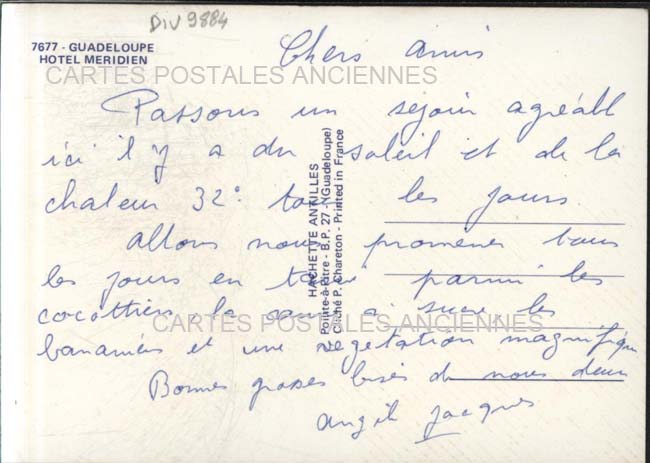 DIV 9884
7677 - GUADELOUPE
HOTEL MERIDIEN
CARTES POSTALES ANCIENNES
Chers amis
Passons un sejour agréabl
ici il y a du soleil et de la
chaleur 32° tous les jours.
Allons nous promener tous
les jours en parmi les
cocottiers la canne a sucre, les
bananiers et une vegetation magnifique
Bonnes grosses bises de nous deux
Jacques
HACHETTE ANTILLES
Pointe-à-Pitre - B.P. 27 - (Guadeloupe)
Cliché P. Chareton - Printed in France
CARTES POSTALES ANCIENNES